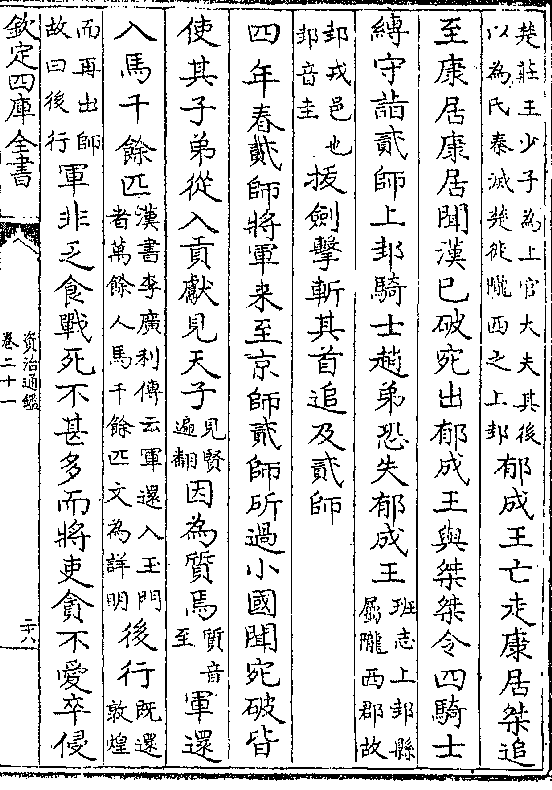 楚莊王少子為上官大夫其後
以為氏秦滅楚徙隴西之上邽
郁成王亡走康居桀追
至康居康居聞漢已破宛出郁成王與桀桀令四騎士
縛守詣貳師上邽騎士趙弟恐失郁成王
班志上邽縣
屬隴西郡故
邽戎邑也
邽音圭
拔劍擊斬其首追及貳師
四年春貳師將軍来至京師貳師所過小國聞宛破皆
使其子弟從入貢獻見天子
見賢
遍翻
因為質焉
質音
至
軍還
入馬千餘匹
漢書李廣利傳云軍還入玉門
者萬餘人馬千餘匹文為詳明
後行
既還敦煌
而再出師
故曰後行
軍非乏食戰死不甚多而將吏貪不愛卒侵
欽定四庫全書
資治通鑑
卷二十一
二十八